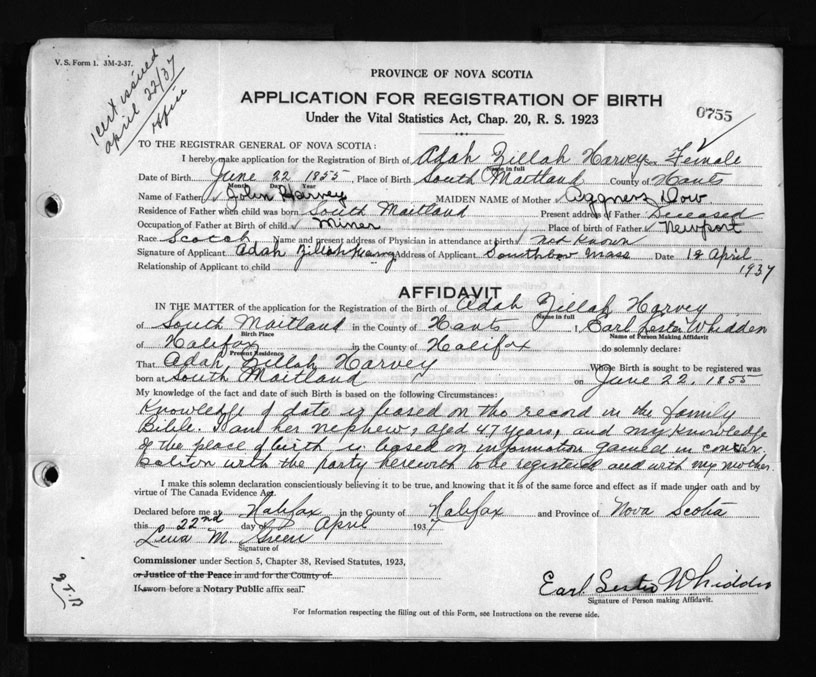 V. S. Form 1. 3M-2-37.
1 cert issued
april 22/37
Office
PROVINCE OF NOVA SCOTIA
APPLICATION FOR REGISTRATION OF BIRTH
0755
Under the Vital Statistics Act, Chap. 20, R. S. 1923
TO THE REGISTRAR GENERAL OF NOVA SCOTIA:
I hereby make application for the Registration of Birth of Adah Zillah Harvey Sex Female
Name in full
Date of Birth June 22 1855, Place of Birth South Maitland County of Hants
Month Day Year
Name of Father John Harvey MAIDEN NAME of Mother Dow
Residence of Father when child was born South Maitland Present address of Father Deceased
Occupation of Father at Birth of child Miner Place of birth of Father Newport
Race Scotch Name and present address of Physician in attendance at birth Not Known
Signature of Applicant Adah Zillah Harvey Address of Applicant Mass Date 12 April
1937
Relationship of Applicant to child
AFFIDAVIT
IN THE MATTER of the application for the Registration of the Birth of Adah Zillah Harvey
Name in full
of South Maitland in the County of Hants I, Earl Lester Whidden
Birth Place Name of Person Making Affidavit
of Halifax in the County of Halifax do solemnly declare:
Present Residence
That Adah Zillah Harvey Whose Birth is sought to be registered was
born at South Maitland on June 22, 1855
My knowledge of the fact and date of such Birth is based on the following Circumstances:
Knowledge of date is based on the record in the family
Bible. I am her nephew, aged 47 years, and my knowledge
of the place of birth is based on information gained in conver
sation with the party herewith to be registered and with my mother.
I make this solemn declaration conscientiously believing it to be true, and knowing that it is of the same force and effect as if made under oath and by
virtue of The Canada Evidence Act.
Declared before me at Halifax in the County of Halifax and Province of Nova Scotia
this 22nd day of April 1937
Lena M. Green
Signature of
Commissioner under Section 5, Chapter 38, Revised Statutes, 1923,
or Justice of the Peace in and for the County of
If sworn before a Notary Public affix seal.
Earl Lester Whidden
Signature of Person making Affidavit.
For Information respecting the filling out of this Form, see Instructions on the reverse side.